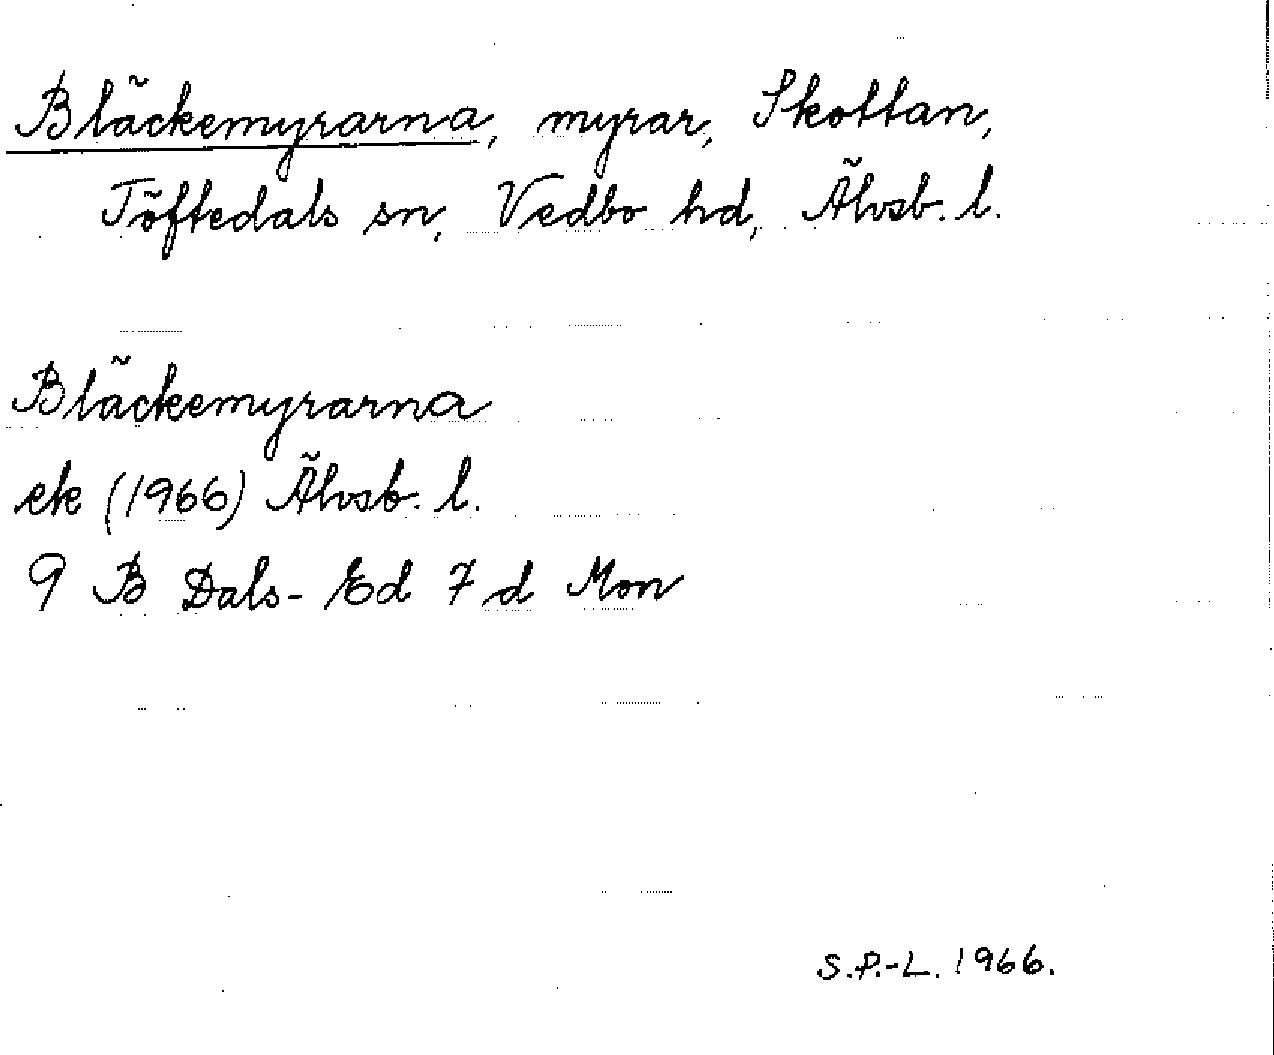 Bläckemyrarna, myrar, Skottan,
Töftedals sn, Vedbo hd, Älvsb. l.
Bläckemyrarna
ek (1966) Älvsb. l.
9 B Dals-Ed 7 d Mon
S.P.-L. 1966.